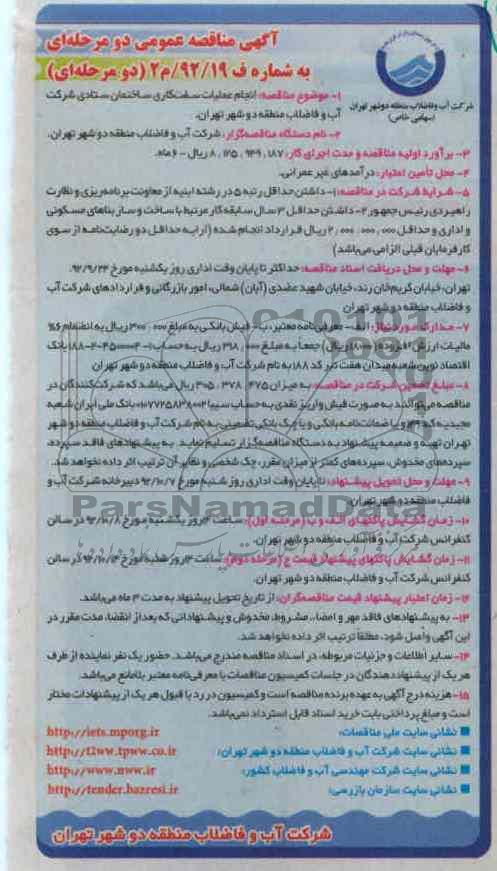 آگهی مناقصه عمومی دو مرحله‌ای
به شماره ف ۹۲/۱۹/م۲ (دو مرحله‌ای)
شرکت آب و فاضلاب منطقه دو شهر تهران
(سهامی خاص)
۱- موضوع مناقصه: انجام عملیات سفت‌کاری ساختمان ستادی شرکت
آب و فاضلاب منطقه دو شهر تهران.
۲- نام دستگاه مناقصه‌گزار: شرکت آب و فاضلاب منطقه دو شهر تهران.
۳- برآورد اولیه مناقصه و مدت اجرای کار: ۸،۱۲۵،۹۴۹،۱۸۷ ریال - ۶ ماه.
۴- محل تأمین اعتبار: درآمدهای غیر عمرانی.
۵- شرایط شرکت در مناقصه: ۱- داشتن حداقل رتبه ۵ در رشته ابنیه از معاونت برنامه‌ریزی و نظارت
راهبردی رئیس جمهور ۲- داشتن حداقل ۳ سال سابقه کار مرتبط با ساخت و ساز بناهای مسکونی
و اداری و حداقل ۲،۰۰۰،۰۰۰،۰۰۰ ریال قرارداد انجام شده (ارایه حداقل دو رضایت‌نامه از سوی
کارفرمایان قبلی الزامی می‌باشد)
۶- مهلت و محل دریافت اسناد مناقصه: حداکثر تا پایان وقت اداری روز یکشنبه مورخ ۹۲/۹/۲۴.
تهران، خیابان کریم‌خان زند، خیابان شهید عضدی (آبان) شمالی، امور بازرگانی و قراردادهای شرکت آب
و فاضلاب منطقه دو شهر تهران
۷- مدارک مورد نیاز: الف- معرفی‌نامه معتبر، ب- فیش بانکی به مبلغ ۳۰۰،۰۰۰ ریال به انضمام ۶%
مالیات ارزش افزوده (۱۸۰۰۰ ریال) جمعاً به مبلغ ۳۱۸،۰۰۰ ریال به حساب بانک
اقتصاد نوین شعبه میدان هفت تیر کد ۱۸۸ به نام شرکت آب و فاضلاب منطقه دو شهر تهران
۸- مبلغ تضمین شرکت در مناقصه: به میزان ۳۰۵،۳۷۸،۴۷۵ ریال می‌باشد که شرکت‌کنندگان در
مناقصه می‌توانند به صورت فیش واریز نقدی به حساب سیبا بانک ملی ایران شعبه
مجیدیه و یا ضمانت‌نامه بانکی و یا چک بانکی تضمینی به نام شرکت آب و فاضلاب منطقه دو شهر
تهران تهیه و ضمیمه پیشنهاد به دستگاه مناقصه‌گزار تسلیم نماید. به پیشنهادهای فاقد سپرده،
سپرده‌های مخدوش، سپرده‌های کمتر از میزان مقرر، چک شخصی و نظایر آن ترتیب اثر داده نخواهد شد.
۹- مهلت و محل تحویل پیشنهاد: تا پایان وقت اداری روز شنبه مورخ ۹۲/۱۰/۷ دبیرخانه شرکت آب و
فاضلاب منطقه دو شهر تهران
۱۰- زمان گشایش پاکتهای الف و ب (مرحله اول): ساعت روز یکشنبه مورخ ۹۲/۱۰/۸ در سالن
کنفرانس شرکت آب و فاضلاب منطقه دو شهر تهران.
۱۱- زمان گشایش پاکتهای پیشنهاد قیمت ج (مرحله دوم): ساعت روز شنبه مورخ در سالن
کنفرانس شرکت آب و فاضلاب منطقه دو شهر تهران.
۱۲- زمان اعتبار پیشنهاد قیمت مناقصه‌گران: از تاریخ تحویل پیشنهاد به مدت ۳ ماه می‌باشد.
۱۳- به پیشنهادهای فاقد مهر و امضاء، مشروط، مخدوش و پیشنهاداتی که بعد از انقضاء مدت مقرر در
این آگهی واصل شود، مطلقاً ترتیب اثر داده نخواهد شد.
۱۴- سایر اطلاعات و جزئیات مربوطه، در اسناد مناقصه مندرج می‌باشد. حضور یک نفر نماینده از طرف
هر یک از پیشنهاد دهندگان در جلسات کمیسیون مناقصات با معرفی‌نامه معتبر بلامانع می‌باشد.
۱۵- هزینه درج آگهی به عهده برنده مناقصه است و کمیسیون در رد یا قبول هر یک از پیشنهادات مختار
است و مبلغ پرداختی بابت خرید اسناد قابل استرداد نمی‌باشد.
نشانی سایت ملی مناقصات: http://iets.mporg.ir
نشانی سایت شرکت آب و فاضلاب منطقه دو شهر تهران: http://t2ww.tpww.co.ir
نشانی سایت شرکت مهندسی آب و فاضلاب کشور: http://www.nww.ir
نشانی سایت سازمان بازرسی: http://tender.bazresi.ir
شرکت آب و فاضلاب منطقه دو شهر تهران
ParsNamadData